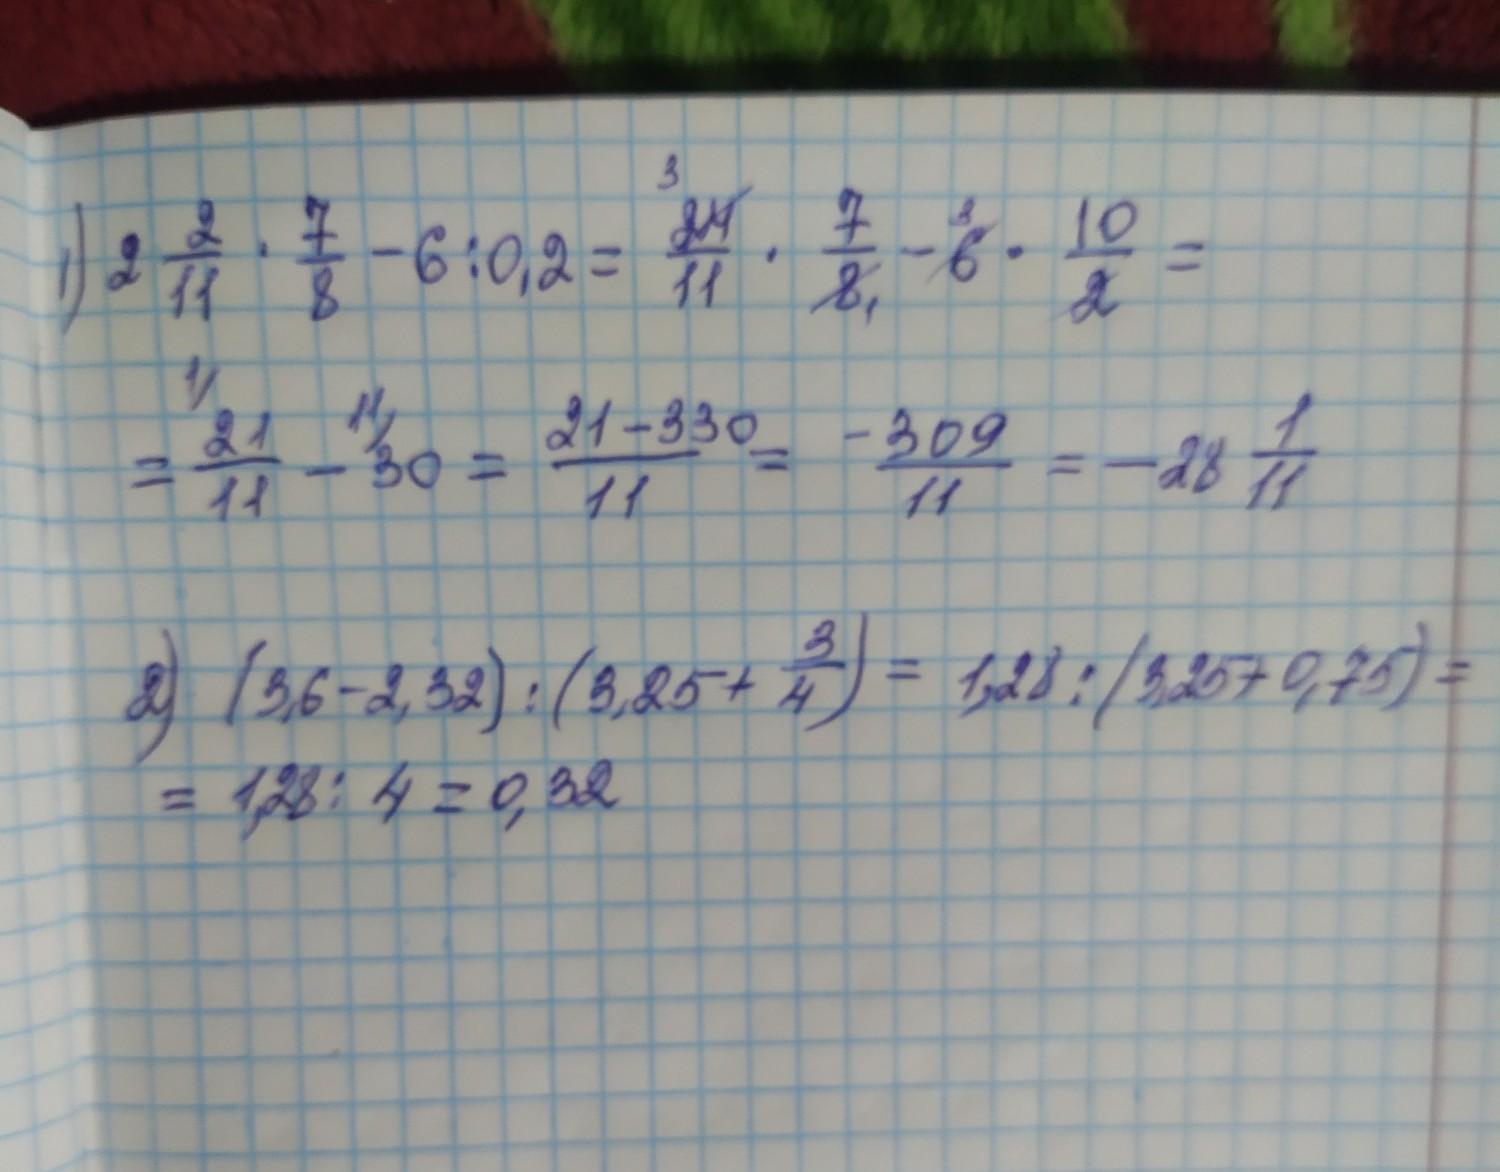 1) 2 2/11 · 7/8 - 6 : 0,2 = 3 24/11 · 7/8 1 - 3 6 · 10/2 =
= 1/ 21/11 - 11/ 30 = 21-330/11 = -309/11 = -28 1/11
2) (3,6-2,32) : (3,25+ 3/4) = 1,28 : (3,25+0,75) =
= 1,28 : 4 = 0,32